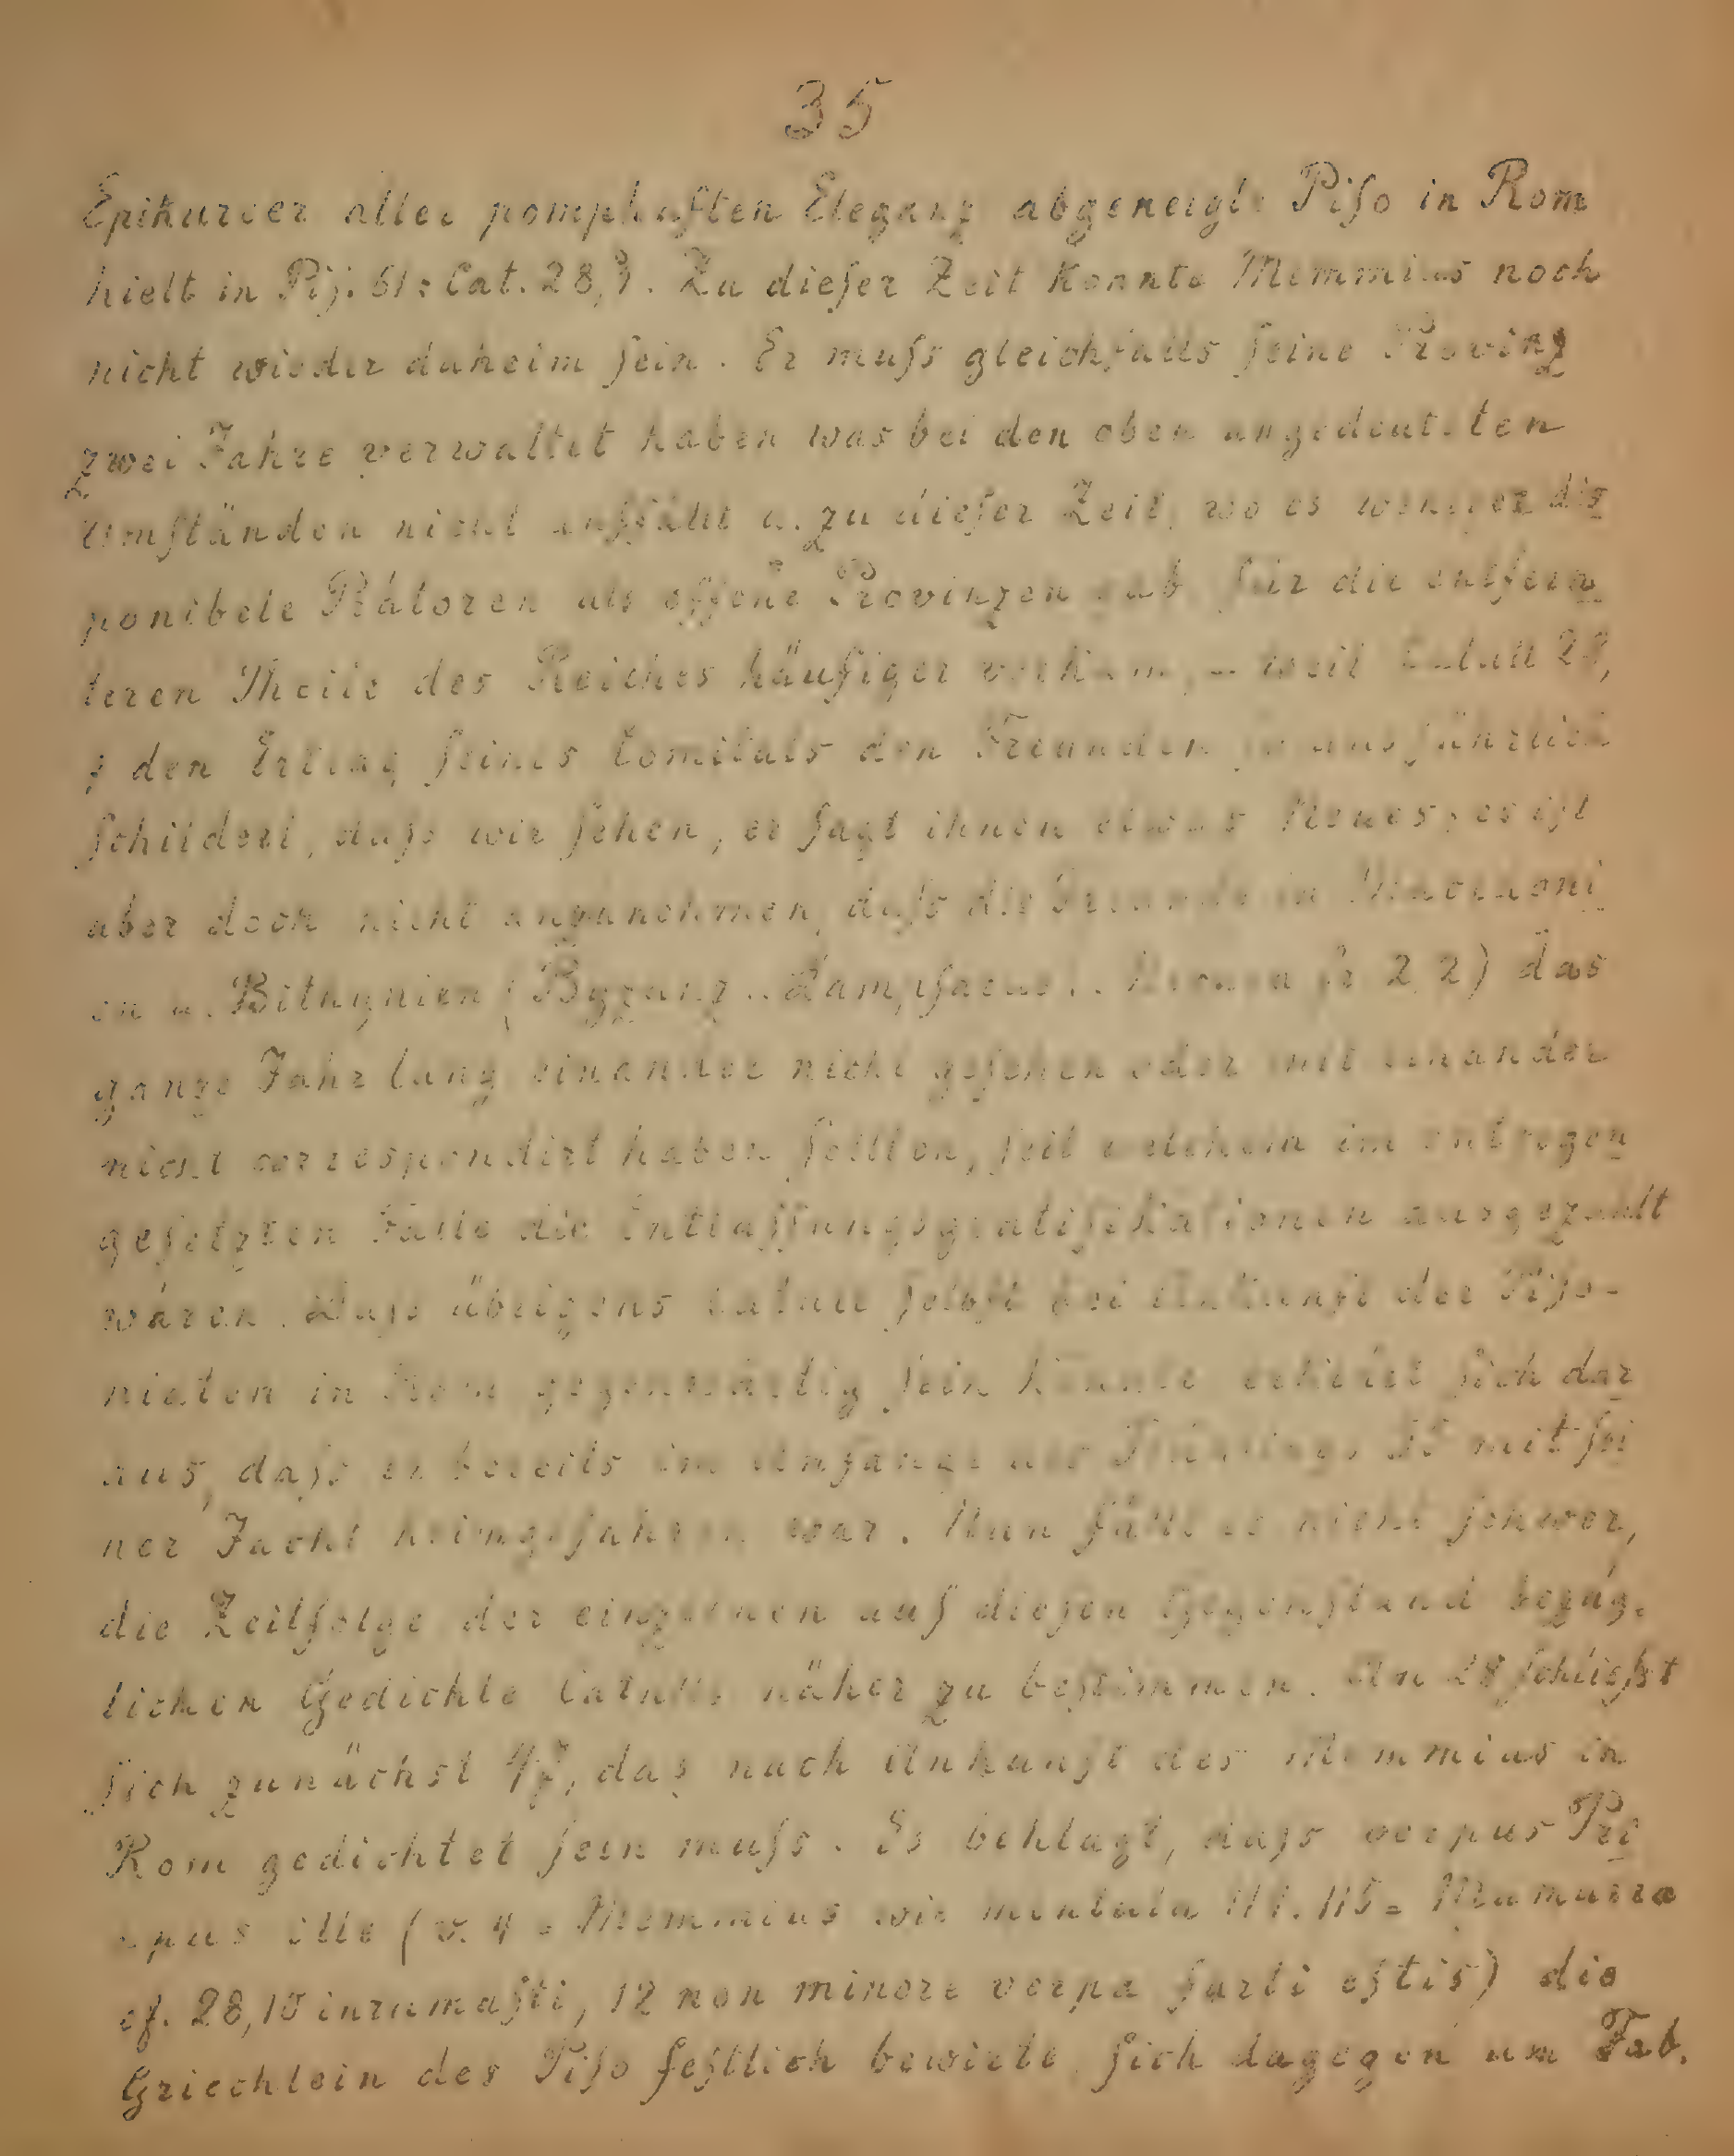 35
Epikureer aller pomphaften Eleganz abgeneigte Piſo in Rom
hielt in Piſ. 61: Cat. 28, 9. Zu dieſer Zeit konnte Memmius noch
nicht wieder daheim ſein. Er muſs gleichfalls ſeine Provinz
zwei Jahre verwaltet haben was bei den oben angedeuteten
Umſtänden nicht auffällt u. zu dieſer Zeit, wo es weniger dis
ponibele Prätoren als offene Provinzen gab für die entfern
teren Theile des Reiches häufiger vorkam, – weil Catull 28,
den Ertrag ſeines Comitats den Freunden ſo ausführlich
ſchildert, daſs wir ſehen, er ſagt ihnen etwas Neues; es iſt
aber doch nicht anzunehmen, daſs die Freunde in Macedoni
en u. Bithynien (Byzanz .. Lampſacus .. 2 2) das
ganze Jahr lang einander nicht geſehen oder mit einander
nicht correspondirt haben ſollten, ſeit welchem im entgegen
geſetzten Falle die Entlaſſungsgratifikationen ausgezahlt
wären. Daſs übrigens Catull ſelbſt bei Ankunft der Piſo-
niaten in Rom gegenwärtig ſein konnte erhellet ſich dar
aus, daſs er bereits im Anfange des Frühlings mit ſei
ner Jacht heimgefahren war. Nun fällt es nicht ſchwer,
die Zeitfolge der einzelnen auf dieſen Gegenſtand bezüg-
lichen Gedichte Catulls näher zu beſtimmen. An 28 ſchlieſst
ſich zunächst 47, das nach Ankunft des Memmius in
Rom gedichtet ſein muſs. Es beklagt, daſs verpus Pri
apus ille (v. 4 = Memmius wie mentula 114. 115 = Mamurra
cf. 28,10 inrumaſti, 12 non minore verpa farti eſtis) die
Griechlein des Piſo feſtlich bewirte, ſich dagegen um Fab.